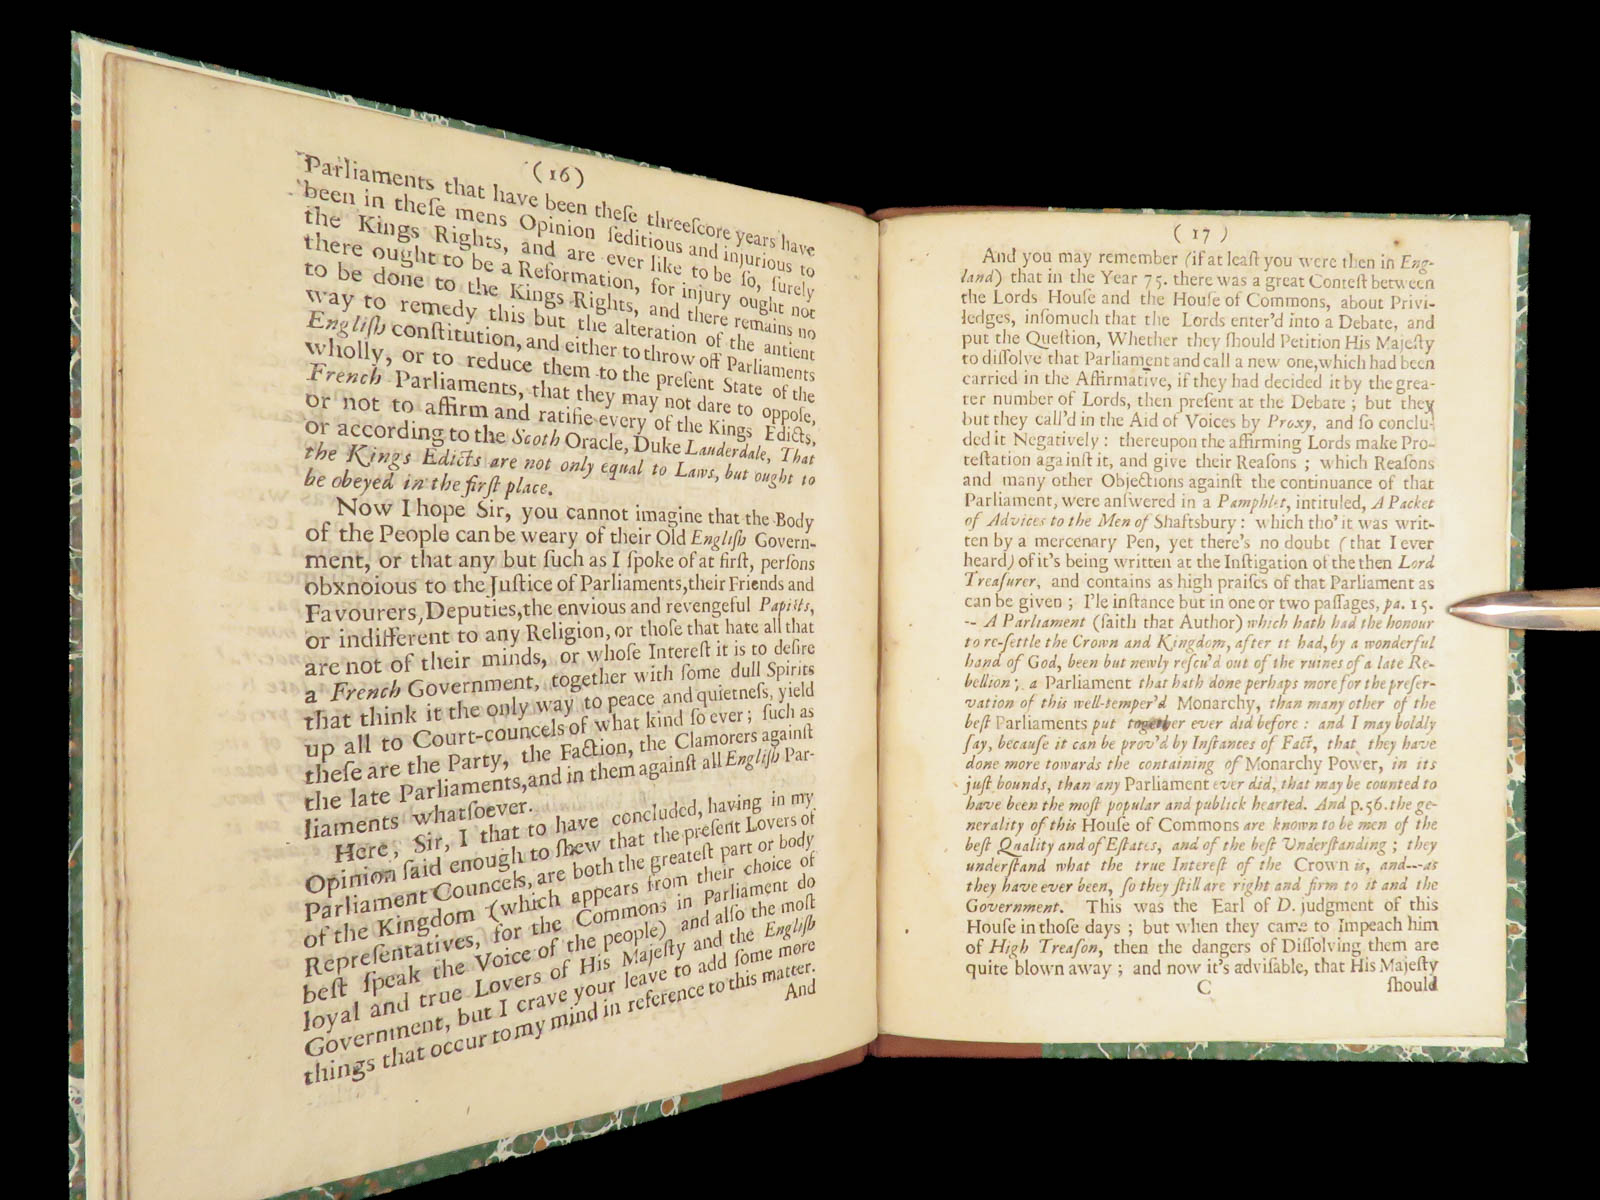 (16)
Parliaments that have been theſe threeſcore years have
been in theſe mens Opinion ſeditious and injurious to
the Kings Rights, and are ever like to be ſo, ſurely
there ought to be a Reformation, for injury ought not
to be done to the Kings Rights, and there remains no
way to remedy this but the alteration of the antient
Engliſh conſtitution, and either to throw off Parliaments
wholly, or to reduce them to the preſent State of the
French Parliaments, that they may not dare to oppoſe,
or not to affirm and ratifie every of the Kings Edicts,
or according to the Scoth Oracle, Duke Lauderdale, That
the Kings Edicts are not only equal to Laws, but ought to
be obeyed in the firſt place.
Now I hope Sir, you cannot imagine that the Body
of the People can be weary of their Old Engliſh Govern-
ment, or that any but ſuch as I ſpoke of at firſt, perſons
obxnoious to the Juſtice of Parliaments, their Friends and
Favourers, Deputies, the envious and revengeful Papiſts,
or indifferent to any Religion, or thoſe that hate all that
are not of their minds, or whoſe Intereſt it is to deſire
a French Government, together with ſome dull Spirits
that think it the only way to peace and quietneſs, yield
up all to Court-councels of what kind ſo ever; ſuch as
theſe are the Party, the Faction, the Clamorers againſt
the late Parliaments, and in them againſt all Engliſh Par-
liaments whatſoever.
Here, Sir, I that to have concluded, having in my
Opinion ſaid enough to ſhew that the preſent Lovers of
Parliament Councels, are both the greateſt part or body
of the Kingdom (which appears from their choice of
Repreſentatives, for the Commons in Parliament do
beſt ſpeak the Voice of the people) and alſo the moſt
loyal and true Lovers of His Majeſty and the Engliſh
Government, but I crave your leave to add ſome more
things that occur to my mind in reference to this matter.
And
(17)
And you may remember (if at leaſt you were then in Eng-
land) that in the Year 75. there was a great Conteſt between
the Lords Houſe and the Houſe of Commons, about Privi-
ledges, inſomuch that the Lords enter'd into a Debate, and
put the Queſtion, Whether they ſhould Petition His Majeſty
to diſſolve that Parliament and call a new one, which had been
carried in the Affirmative, if they had decided it by the grea-
ter number of Lords, then preſent at the Debate; but they
but they call'd in the Aid of Voices by Proxy, and ſo conclu-
ded it Negatively: thereupon the affirming Lords make Pro-
teſtation againſt it, and give their Reaſons; which Reaſons
and many other Objections againſt the continuance of that
Parliament, were anſwered in a Pamphlet, intituled, A Packet
of Advices to the Men of Shaftsbury: which tho' it was writ-
ten by a mercenary Pen, yet there's no doubt (that I ever
heard) of it's being written at the Inſtigation of the then Lord
Treaſurer, and contains as high praiſes of that Parliament as
can be given; I'le inſtance but in one or two paſſages, pa. 15.
-- A Parliament (ſaith that Author) which hath had the honour
to re-ſettle the Crown and Kingdom, after it had, by a wonderful
hand of God, been but newly reſcu'd out of the ruines of a late Re-
bellion; a Parliament that hath done perhaps more for the preſer-
vation of this well-temper'd Monarchy, than many other of the
beſt Parliaments put together ever did before: and I may boldly
ſay, becauſe it can be prov'd by Inſtances of Fact, that they have
done more towards the containing of Monarchy Power, in its
juſt bounds, than any Parliament ever did, that may be counted to
have been the moſt popular and publick hearted. And p. 56. the ge-
nerality of this Houſe of Commons are known to be men of the
beſt Quality and of Eſtates, and of the beſt Underſtanding; they
underſtand what the true Intereſt of the Crown is, and---as
they have ever been, ſo they ſtill are right and firm to it and the
Government. This was the Earl of D. judgment of this
Houſe in thoſe days; but when they came to Impeach him
of High Treaſon, then the dangers of Diſſolving them are
quite blown away; and now it's adviſable, that His Majeſty
C
ſhould